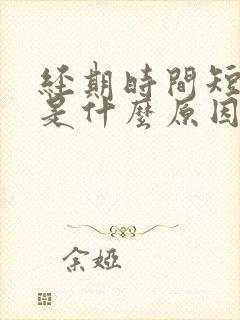 經期時間短
是什麼原因
余婭